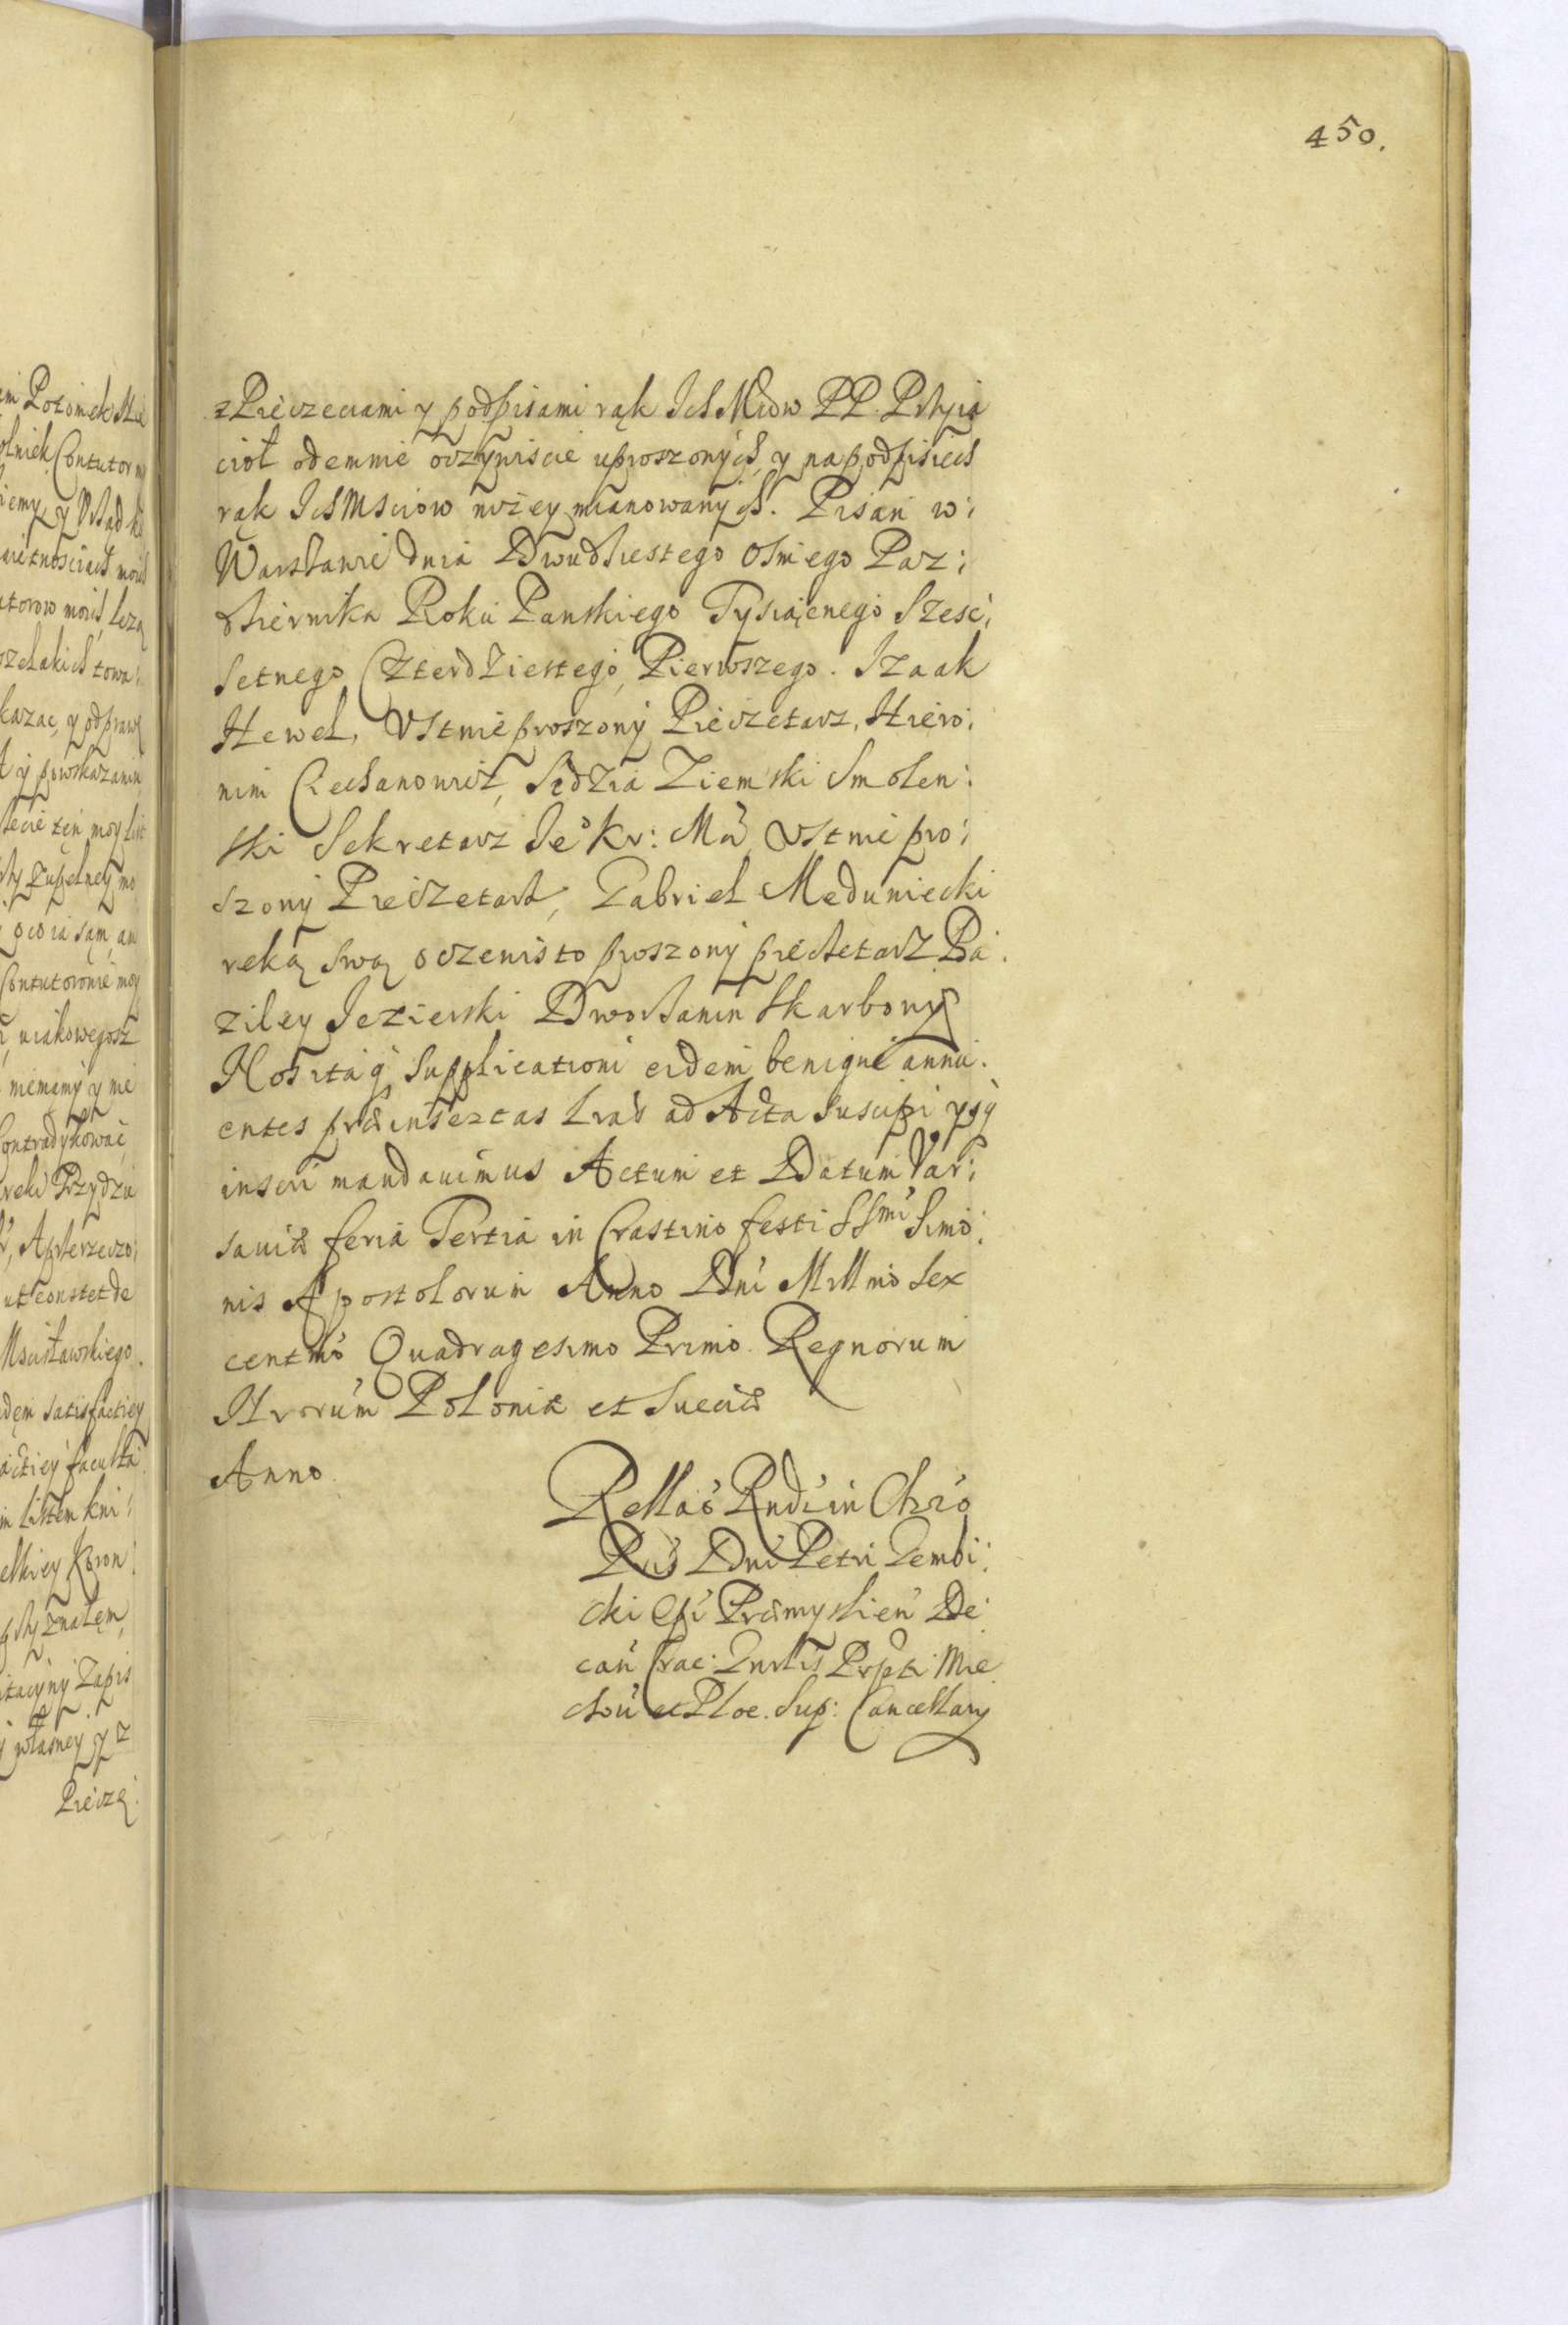 450.
z Pieczeciami y podpisami rąk Ich Mciow PP. Przyia
cioł odemnie oczywiscie uproszonych, y na podpisiech
rąk Ich Msciow niżey mianowanych. Pisan w:
Warszawie dnia Dwudziestego Osmego Paz:
dziernika Roku Panskiego Tysiącnego Szesc:
setnego Czterdziestego Pierwszego. Izaak
Hewel, Ustnie proszony Pieczetarz, Hiero:
nim Ciechanowicz, Sędzia Ziemski Smolen:
ski Sekretarz Je° Kr: Mci, Ustnie pro:
szony Pieczetarz, Gabriel Meduniecki
ręką swą oczewisto proszony pieczetarz Ba:
ziley Jezierski Dworzanin Skarbowy
Nos itaq supplicationi eidem benigne annu:
entes præinsertas Lras ad Acta suscipi ysq
inscri mandauimus Actum et Datum Var:
sauiæ feria Tertia in Crastino festi SSmi Simo:
nis Apostolorum Anno Dni Millmo Sex
centmo Quadragesimo Primo. Regnorum
Nrorum Poloniæ et Sueciæ
Anno
Rellao Rndi in Chro
Pris Dni Petri Gembi:
cki Epi Præmyslien De
can Crac: Gnrlis Prpti Mie
chou et Ploc. Sup: Cancellary
Potomek
Contutor
towa:
y odpraw
ten moy list
zupełney mo
Contutorowie moy
niemamy y nie
Contradykować,
Przydzie
ut constet de
Mscisławskiego.
satisfactiey
faculta
Listem kni:
Koron
znałem,
Zapis
własney y z
Pieczę: